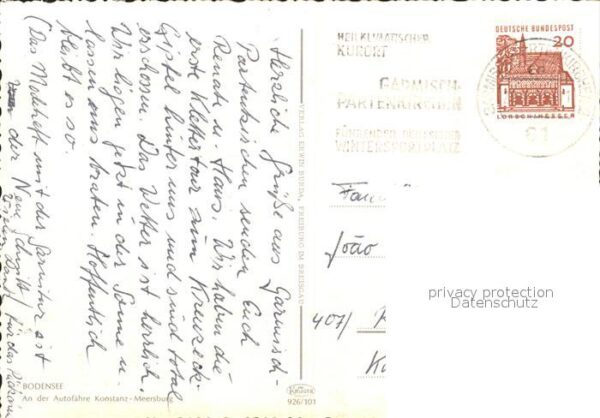 Herzliche Grüße aus Garmisch-
Partenkirchen senden Euch
Renate u. Hans. Wir haben die
erste Klettertour zum Kreuzeck-
Gipfel hinter uns und sind total
erschossen. Das Wetter ist herrlich.
Wir liegen jetzt in der Sonne u.
lassen uns braten. Hoffentlich
bleibt es so.
(Das Modeheft mit der Garnitur ist
der Neue Schnitt) für das
BODENSEE
An der Autofähre Konstanz-Meersburg
VERLAG ERWIN BURDA, FREIBURG IM BREISGAU
926/101
HEILKLIMATISCHER
KURORT
GARMISCH-
PARTENKIRCHEN
FÜHRENDER DEUTSCHER
WINTERSPORTPLATZ
DEUTSCHE BUNDESPOST
20
LORSCH/HESSEN
81
João
407/
privacy protection
Datenschutz